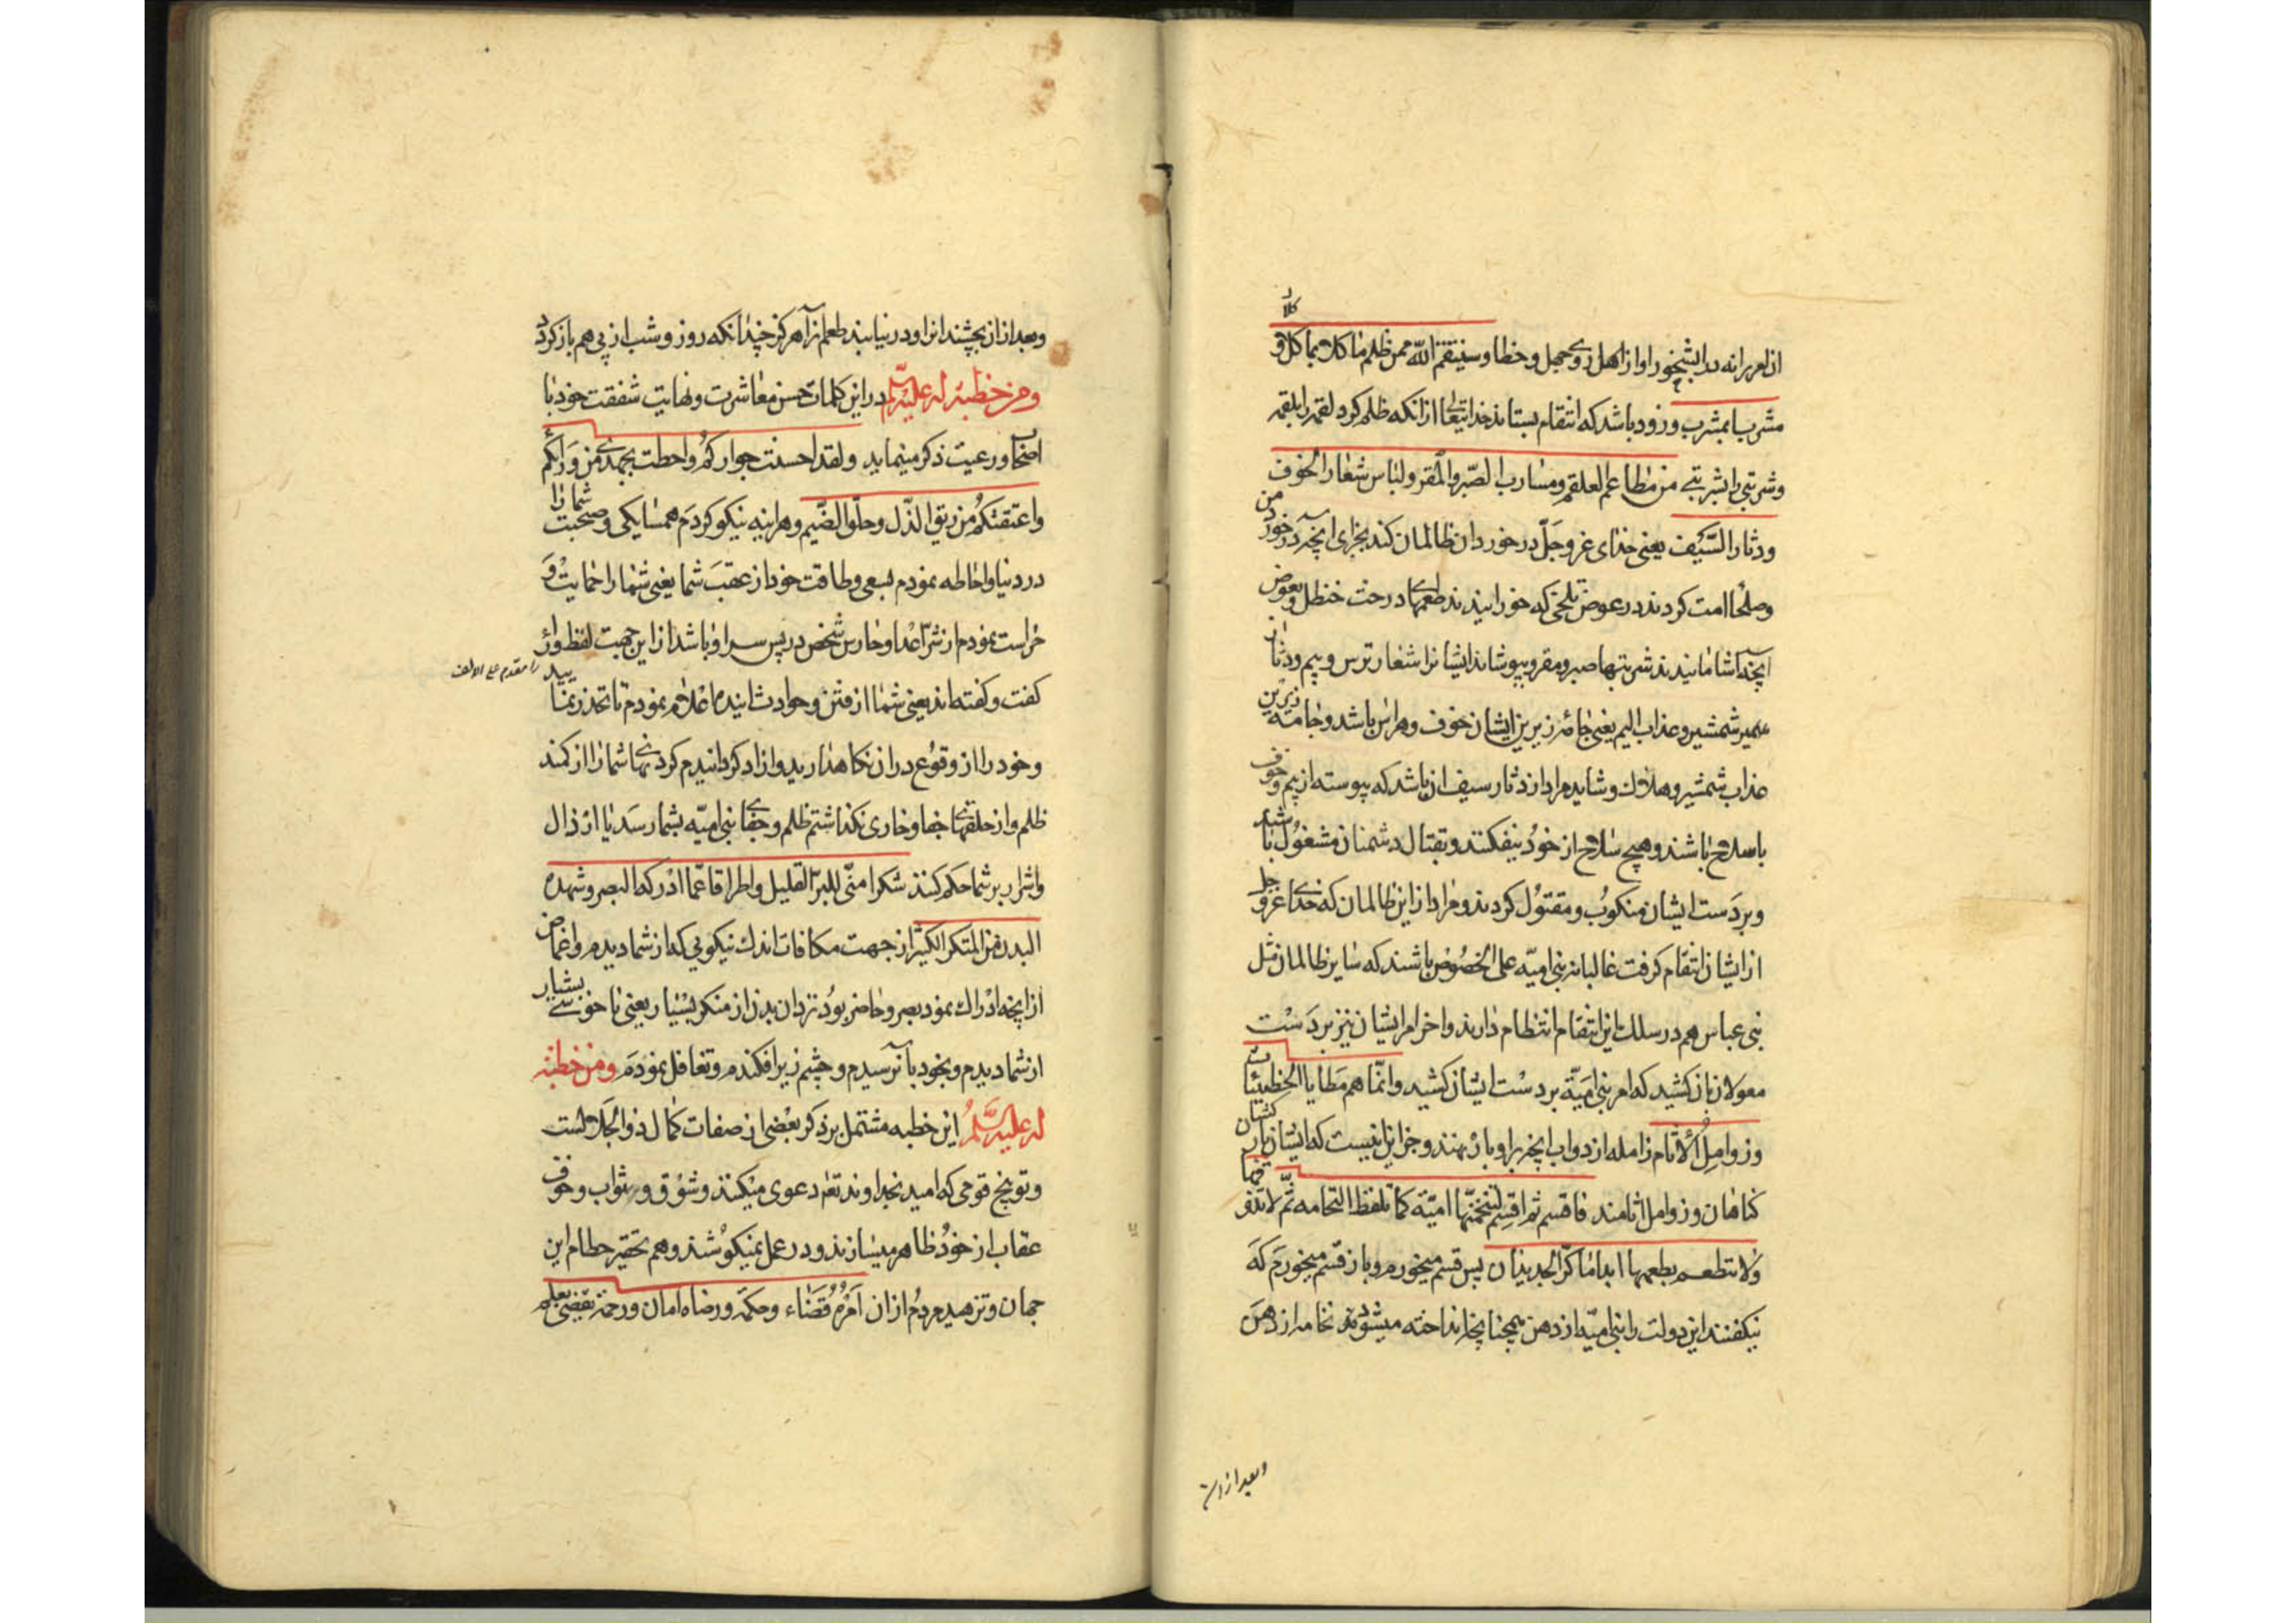 کلا د
از لعر برانه بدا بشیخور او از اهل زوی جهل و خطا و سینتقم الله ممن ظلم ماکلا بماکل و
مشربا بمشرب و زود باشد که انتقام بستاند خدایتعالی از آنکه ظلم کرد لقمه را بلقمه
و شربتی را بشربتی من مطاعم العلقم ومشارب الصبر والمقر ولباس شعار الخوف
ودثار السیف یعنی خدای عز وجل در خورد ان ظالمان کند بجزای آنچه در خورد من
وصلحا امت کردند در عوض تلخی که خورانیدند طعمهای درخت حنظل و بعوض
آنچه اشامانیدند شربتها صبر و مقر و بپوشاند ایشانرا شعار ترس و بیم و دثار
شمشیر و عذاب الیم یعنی جامه زیرین ایشان خوف و هراس باشد و جامه زبرین
عذاب شمشیر و هلاک و شاید مراد از دثار سیف ان باشد که پیوسته از بیم و خوف
باسلاح باشند و هیچ سلاح از خود نیفکنند و بقتال دشمنان مشغول باشند
و بر دست ایشان منکوب و مقتول کردند و مراد از این ظالمان که خدای عز و جل
از ایشان انتقام کرفت غالبا نه بنی امیّه علی الخصوص باشند که سایر ظالمان مثل
بنی عباس هم در سلک این انتقام انتظام دارند و اخر امر ایشان نیز بر دست
مغولان بان کشید که امر بنی امیّه بر دست ایشان کشید وانّما هم مطایا الخطیئات
وزوامل الاثام زامله از دواب آنچه بر او بار نهند و جز این نیست که ایشان بار کشان
کناهان و زوامل اثامند فاقسم ثم اقسم لتنخمنّها امیّة کما تلفظ النخامه ثم لا تذوقها
ولا تتطعم بطعمها ابدا ما کرّ الجدیدان پس قسم میخورم و باز قسم میخورم که
بیکفنند این دولت را بنی امیّه از دهن همچنانچه انداخته میشود نخامه از دهن
وبعد از ان
وبعد از ان بچشند انرا و در نیابند طعم انرا هرکز چندانکه روز و شب از پی هم باز کردد
ومن خطبة له علیه السّلم در این کلمات حسن معاشرت و نهایت شفقت خود با
اصحاب و رعیت ذکر مینماید ولقد احسنت جوارکم واحطت بجهدی من ورائکم
واعتقتکم من ربق الذّل وحلق الضّیم و هراینه نیکو کردم همسایکی و صحبت شما را
در دنیا و احاطه نمودم بسعی و طاقت خود از عقب شما یعنی شما را حمایت و
حراست نمودم از شرّ اعدا و حارس شخص در پس سر او باشد از این جهت لفظ ورائ
را مقدم علی الالف
کفت و کفته اند یعنی شما را از فتن و حوادث اینده اعلام نمودم تا تحذر نمایید
و خود را از وقوع در ان نکاهدارید و ازاد کردانیدم کردنهای شما را از کمند
ظلم و از حلقهای جفا و خاری نکذاشتم ظلم و جفای بنی امیّه بشما رسد یا ارذال
واشرار بر شما حکم کنند شکرا منّی للبرّ القلیل واطراقا عمّا ادرکه البصر وشهده
البدن من المنکر الکثیر از جهت مکافات اندک نیکویی که از شما دیدم و اغماض
از آنچه ادراک نمود بصر و حاضر بود نزد ان بدن از منکر بسیار یعنی ناخوشی بسیار
از شما دیدم و بخود بآن نرسیدم و چشم زیر افکندم و تغافل نمودم ومن خطبة
له علیه السّلم این خطبه مشتمل بر ذکر بعضی از صفات کمال ذو الجلالست
و توبیخ قومی که امید بخداوند تعم دعوی میکنند و شوق و ر ثواب و خوف
عقاب از خود ظاهر میسازند و در عمل نمیکوشند و هم تحقیر حطام این
جهان و تزهید مردم از ان امره قضاء وحکمة ورضاه امان ورحمة یقضی بعلم